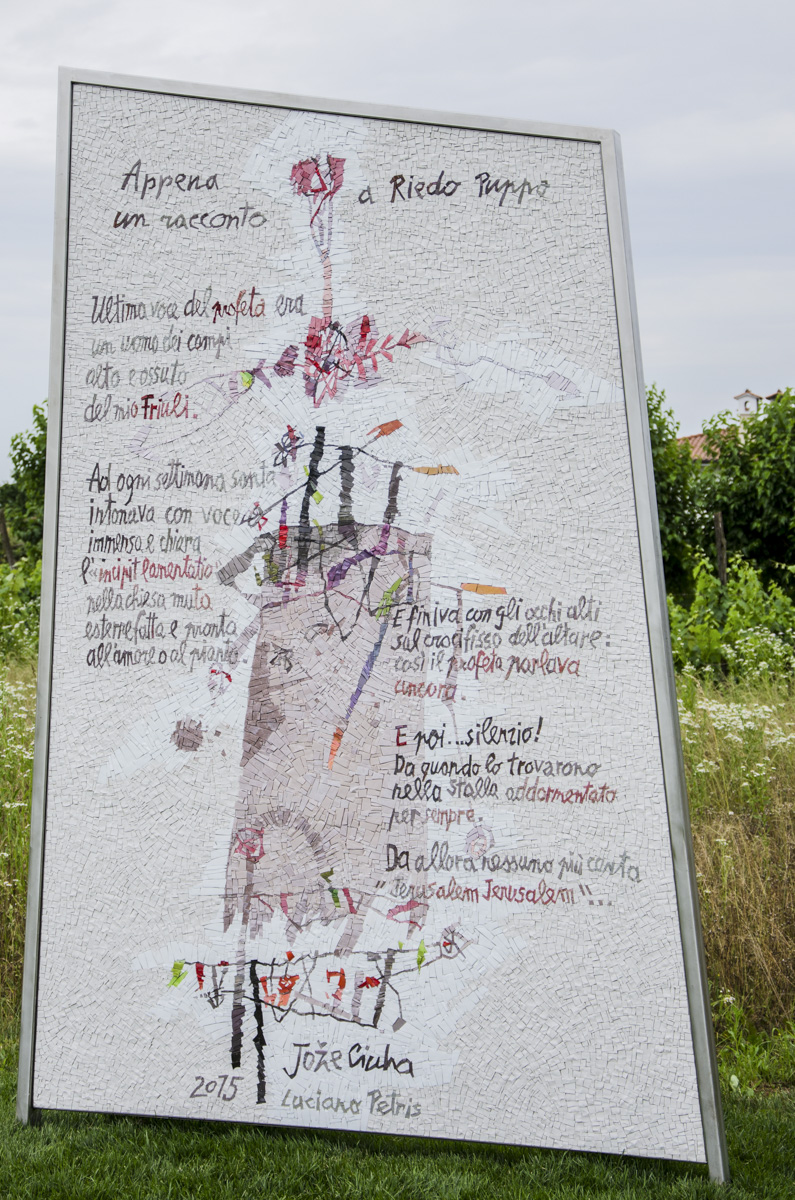 Appena
un racconto
a Riedo Puppo
Ultima voce del profeta era
un uomo dei campi
alto e ossuto
del mio Friuli.
Ad ogni settimana santa
intonava con voce
immensa e chiara
l'"incipit lamentatio
nella chiesa muta
esterrefatta e pronta
all'amore o al pianto.
E finiva con gli occhi alti
sul crocifisso dell'altare:
così il profeta parlava
ancora.
E poi...silenzio!
Da quando lo trovarono
nella stalla addormentato
per sempre.
Da allora nessuno più canta
"Jerusalem Jerusalem"...
Jože Ciuha
2015
Luciano Petris